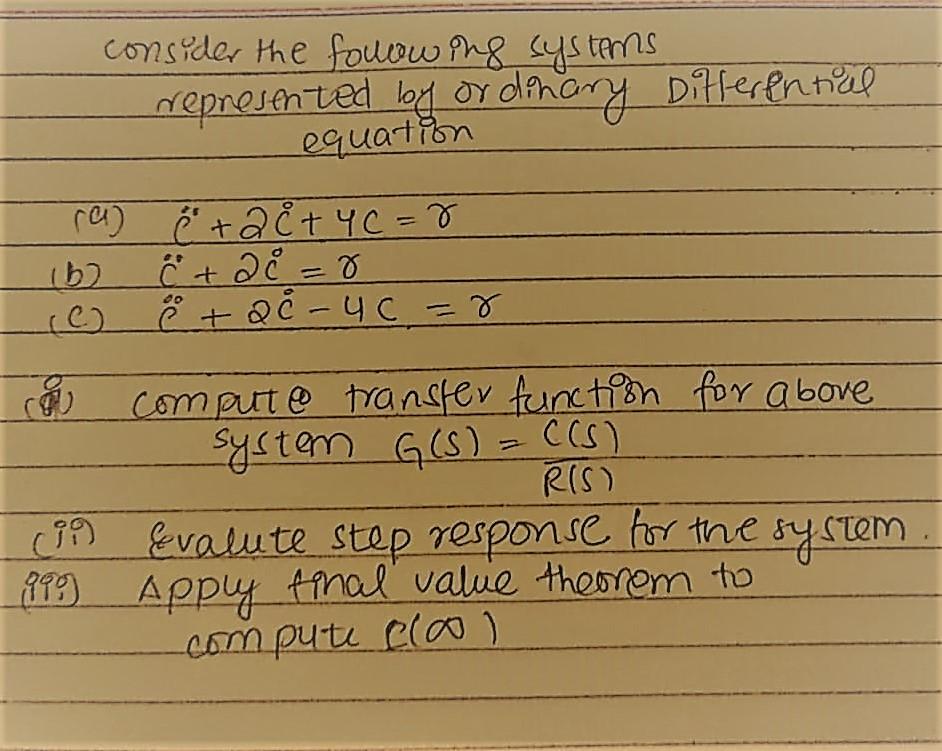 consider the following systems
represented by ordinary Differential
equation
(a) c̈ + 2ċ + 4c = r
(b) c̈ + 2ċ = r
(c) c̈ + 2ċ - 4c = r
(i) compute transfer function for above
system G(s) = C(s)
R(s)
(ii) Evalute step response for the system.
(iii) Apply final value theorem to
compute c(∞)